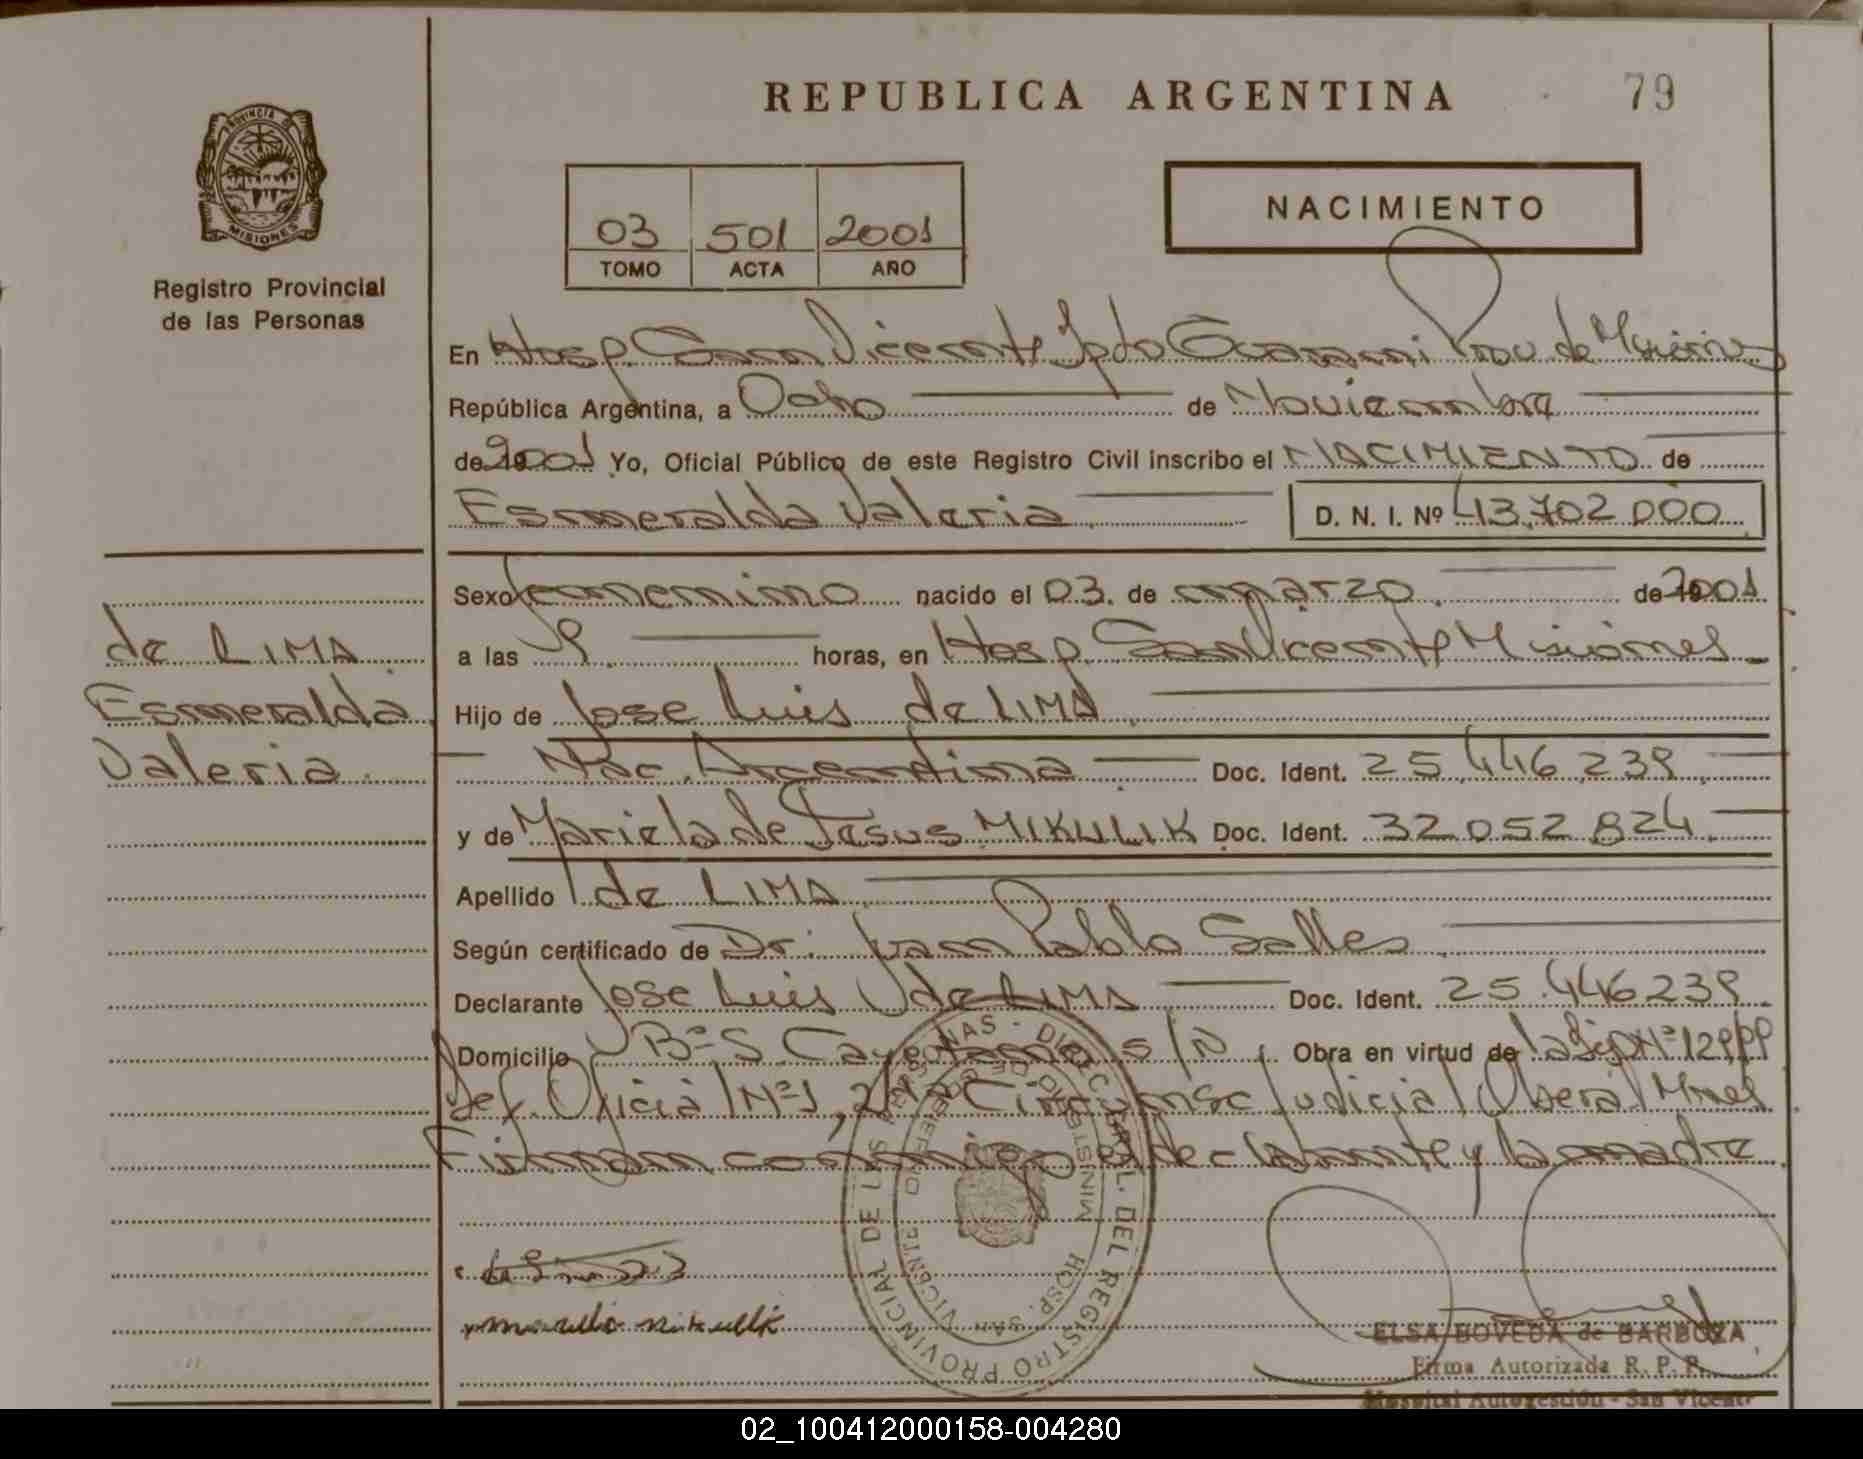 REPUBLICA ARGENTINA
79
PROVINCIA DE
MISIONES
Registro Provincial
de las Personas
03 501 2001
TOMO ACTA AÑO
NACIMIENTO
En Hosp. San Vicente Dpto Guarani Prov. de Misiones
República Argentina, a Ocho de Noviembre
de 2001 Yo, Oficial Público de este Registro Civil inscribo el NACIMIENTO de
Esmeralda Valeria D. N. I. Nº 43.702 000
Sexo femenino nacido el 03 de marzo de 2001
a las 9 horas, en Hosp. San Vicente Misiones
Hijo de Jose Luis de LIMA
Nac. Argentina Doc. Ident. 25.446.239
y de Mariela de Jesus MIKULIK Doc. Ident. 32 052 824
Apellido de LIMA
Según certificado de Dr. Juan Pablo Salles
Declarante Jose Luis de LIMA Doc. Ident. 25.446239
Domicilio Bº S. Cayetano s/N Obra en virtud de
Def. Oficial Nº1, 2da Circunsc Judicial Obera Mnes
Firman conmigo el declarante y la madre
de LIMA
Esmeralda
Valeria
mikulik
REGISTRO PROVINCIAL DE LAS PERSONAS - DIREC. GRAL. DEL
MINISTERIO DE GOBIERNO
HOSP. SAN VICENTE
ELSA BOVEDA de BARBOZA
Firma Autorizada R. P. P.
Hospital Autogestión - San Vicente
02_100412000158-004280